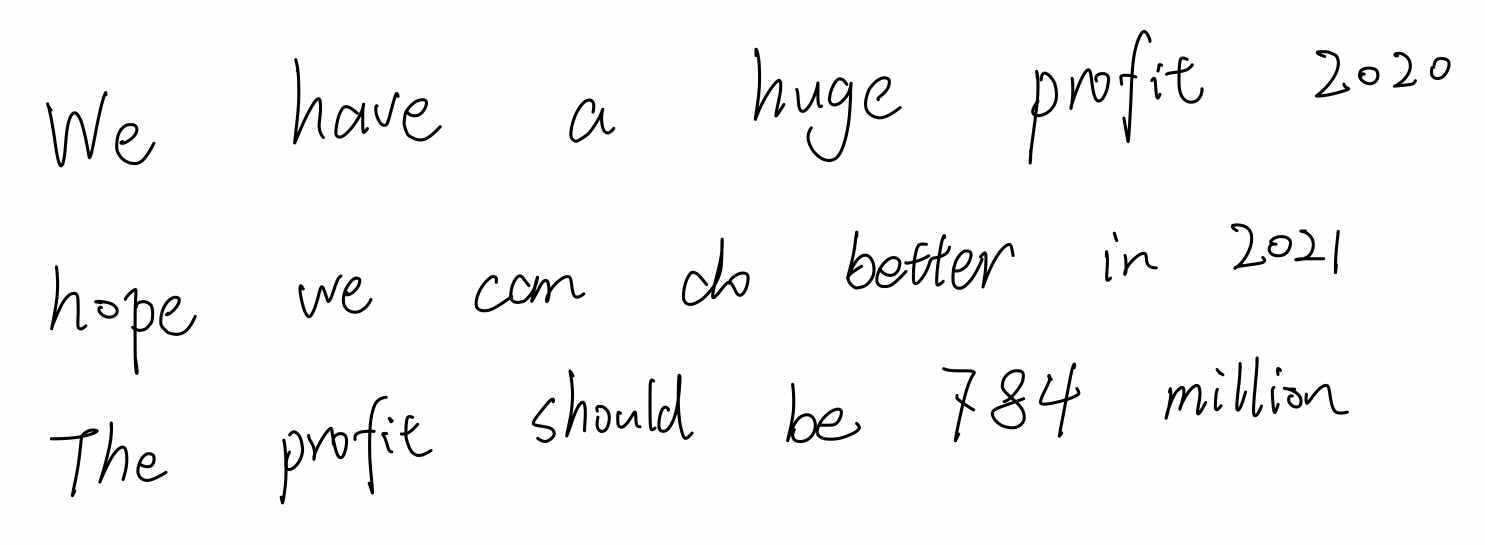 We have a huge profit 2020
hope we can do better in 2021
The profit should be 784 million